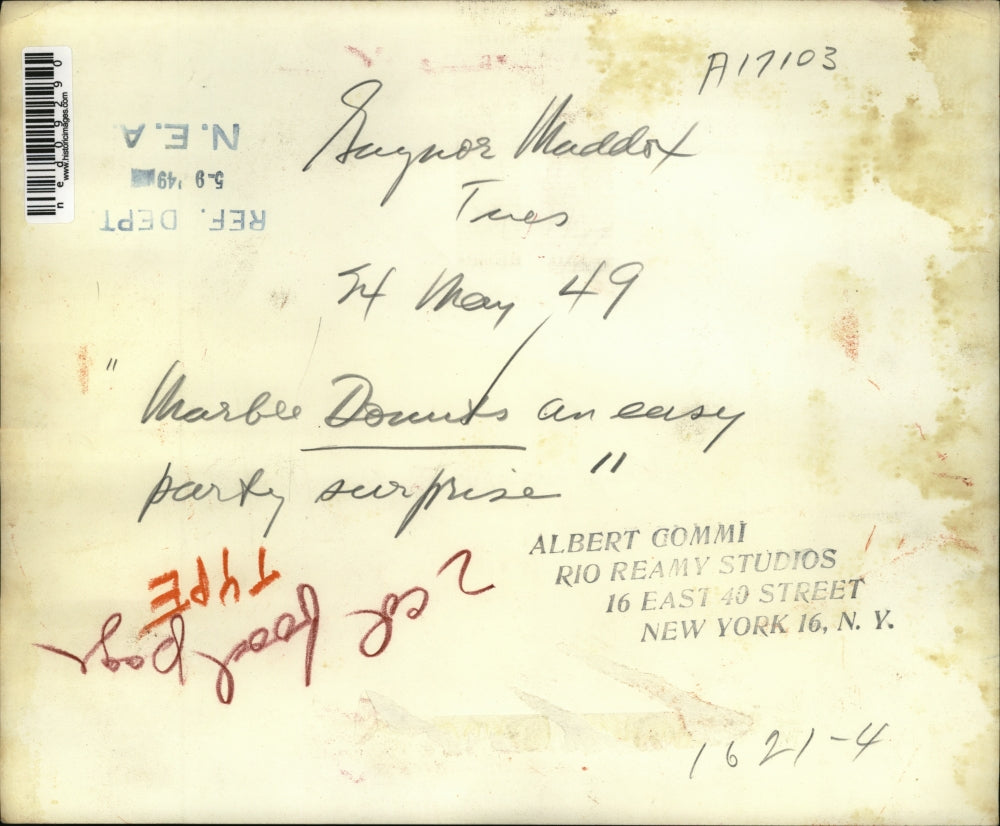 A17103
Gaynor Maddox
Tues
24 May 49
"Marble Donuts an easy
party surprise"
ALBERT GOMMI
RIO REAMY STUDIOS
16 EAST 40 STREET
NEW YORK 16, N. Y.
1621-4
REF. DEPT
5-9 '49
N.E.A.
TYPE
2 col food page
www.historicimages.com